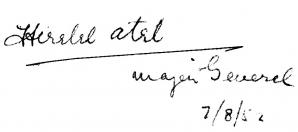 Hiralal Atal
Major General
7/8/52